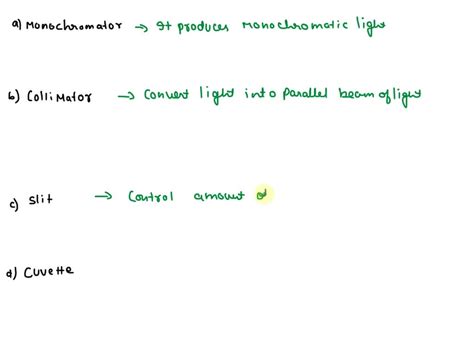 a) Monochromator → It produces Monochromatic light
b) Collimator → Convert light into Parallel beam of light
c) Slit → Control amount o
d) Cuvette